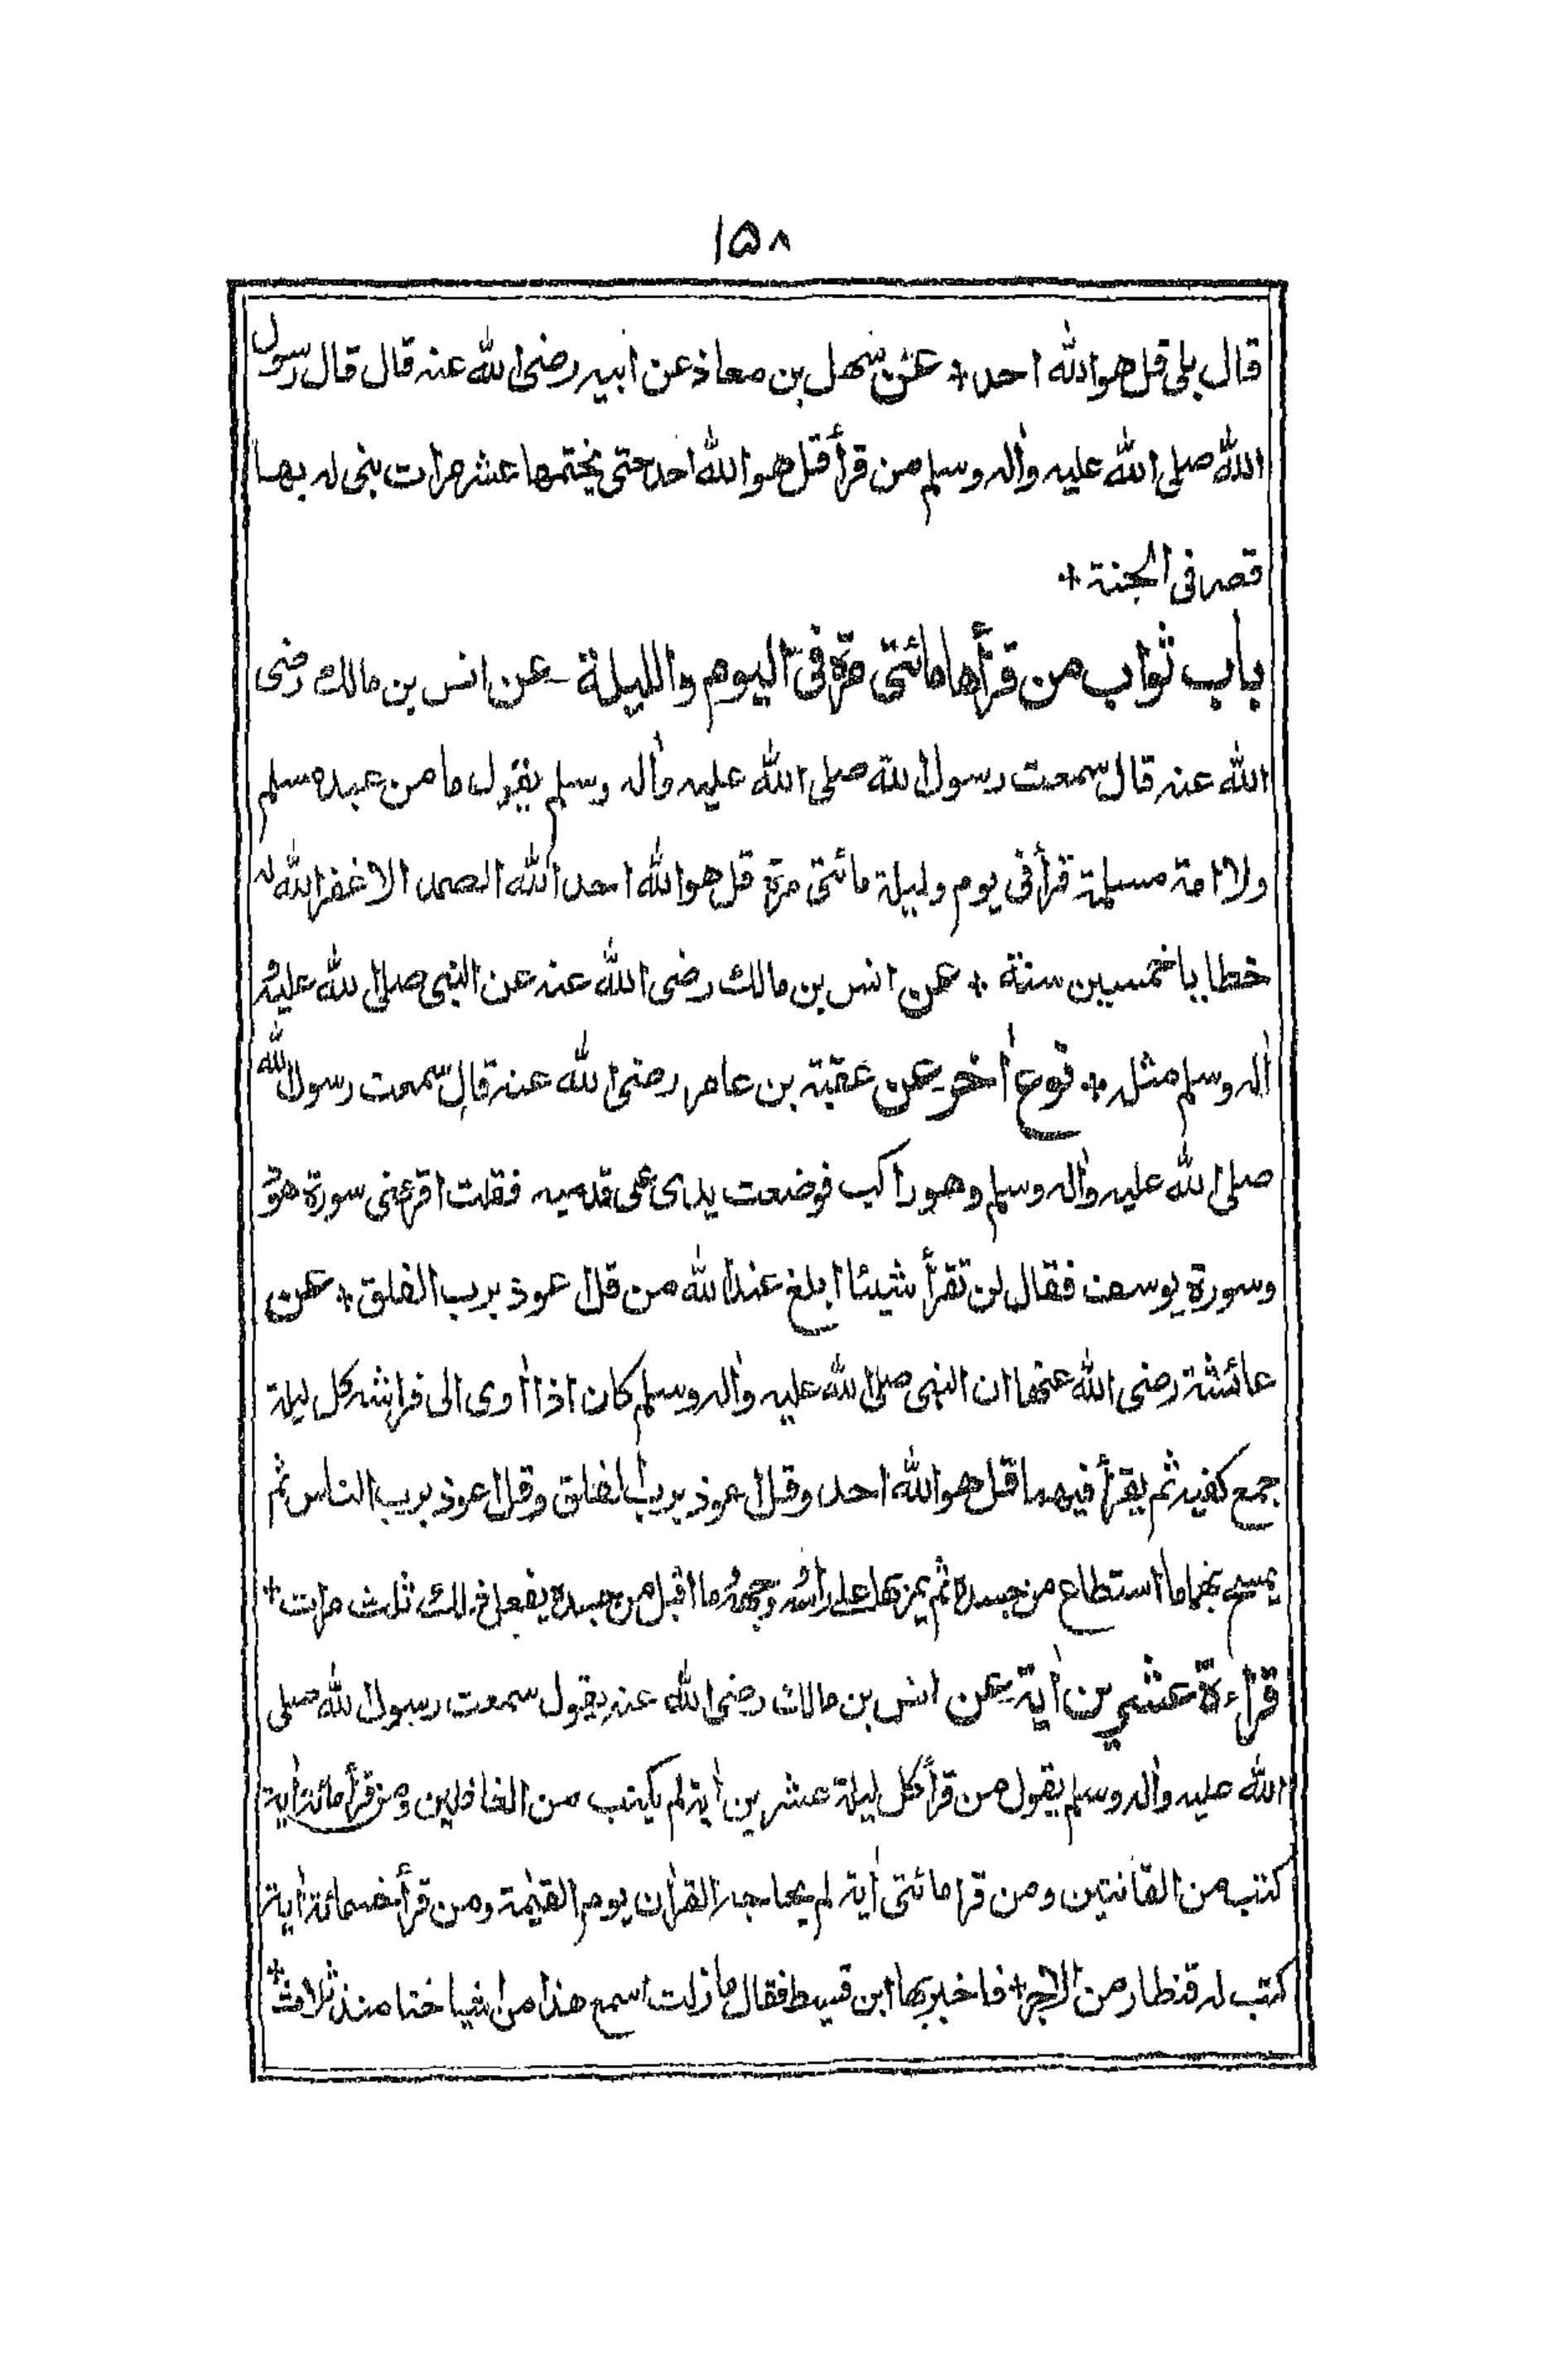 ۱۵۸
قال بلى قل هو الله احد * عن سهل بن معاذ عن ابيه رضى الله عنه قال قال رسول
الله صلى الله عليه واٰله وسلم من قرأ قل هو الله احد حتى يختمها عشر مرات بنى له بها
قصر فى الجنة *
باب ثواب من قرأها مائتى مرة فى اليوم والليلة - عن انس بن مالك رضى
الله عنه قال سمعت رسول الله صلى الله عليه واٰله وسلم يقول ما من عبد مسلم
ولا امة مسلمة قرأ فى يوم وليلة مائتى مرة قل هو الله احد الله الصمد الا غفر الله له
خطايا خمسين سنة * عن انس بن مالك رضى الله عنه عن النبى صلى الله عليه و
اٰله وسلم مثله * نوع اٰخر عن عقبة بن عامر رضى الله عنه قال سمعت رسول الله
صلى الله عليه واٰله وسلم وهو راكب فوضعت يدى على قدميه فقلت اقرءنى سورة هود
وسورة يوسف فقال لن تقرأ شيئا ابلغ عند الله من قل اعوذ برب الفلق * عن
عائشة رضى الله عنها ان النبى صلى الله عليه واٰله وسلم كان اذا أوى الى فراشه كل ليلة
جمع كفيه ثم يقرأ فيهما قل هو الله احد وقل اعوذ برب الفلق وقل اعوذ برب الناس ثم
يمسح بهما ما استطاع من جسده ثم يمر بها على رأسه ووجهه وما اقبل من جسده يفعل ذلك ثلث مرات *
قراءة عشرين اٰية عن انس بن مالك رضى الله عنه يقول سمعت رسول الله صلى
الله عليه واٰله وسلم يقول من قرأ كل ليلة عشرين اٰية لم يكتب من الغافلين ومن قرأ مائة اٰية
كتب من القانتين ومن قرا مائتى اٰية لم يحاجه القراٰن يوم القيٰمة ومن قرأ خسمائة اٰية
كتب له قنطار من الاجر * فاخبر بها ابن قسيط فقال ما زلت اسمع هذا من اشياخنا منذ ثلاث *